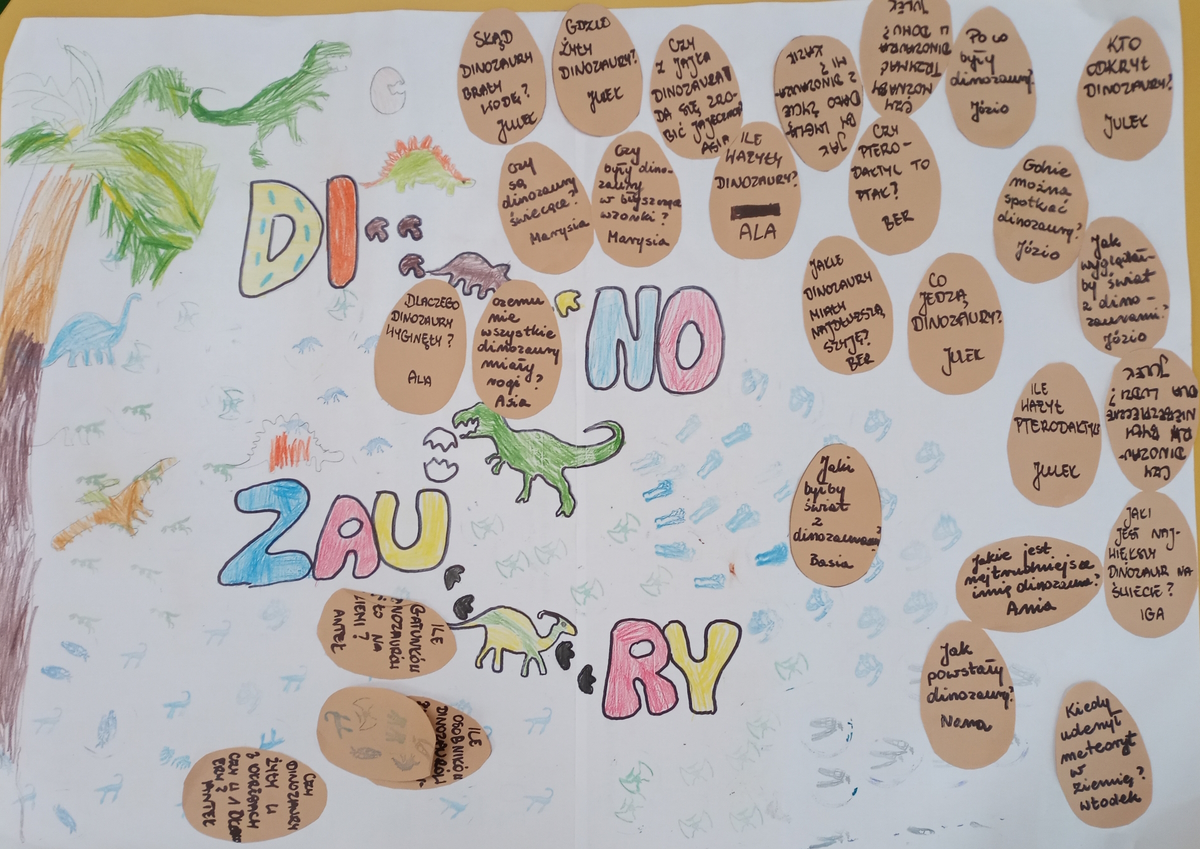 SKĄD
DINOZAURY
BRAŁY
WODĘ?
JULEK
GDZIE
ŻYŁY
DINOZAURY?
JULEK
CZY
Z JAJKA
DINOZAURA
DA SIĘ ZRO-
BIĆ JAJECZNICĘ
ASIA
JAK
BY
DAŁO ŻYCIE
Z DINOZAURA-
MI?
KAZIK
CZY
MOŻNABY
TRZYMAĆ
DINOZAURA
W DOMU?
JULEK
Po co
były
dinozaury?
Józio
KTO
ODKRYŁ
DINOZAURY?
JULEK
Czy
są
dinozaury
świecące?
Marysia
Czy
były dino-
zaury
w błyszczące
wzorki?
Marysia
ILE
WAŻYŁY
DINOZAURY?
ALA
CZY
PTERO-
DAKTYL TO
PTAK?
BER
Gdzie
można
spotkać
dinozaury?
Józio
Jak
wyglądał-
by świat
z dino-
zaurami?
Józio
DI
NO
ZAU
RY
DLACZEGO
DINOZAURY
WYGINĘŁY?
ALA
czemu
nie
wszystkie
dinozaury
miały
rogi?
Asia
JAKIE
DINOZAURY
MIAŁY
NAJDŁUŻSZĄ
SZYJĘ?
BER
CO
JEDZĄ
DINOZAURY?
JULEK
ILE
WAŻYŁ
PTERODAKTYL?
JULEK
CZY
DINOZAU-
RY BYŁY
NIEBEZPIECZNE
DLA LUDZI?
JULEK
Jaki
byłby
świat
z
dinozaurami?
Basia
Jakie jest
najtrudniejsze
imię dinozaura?
Ania
JAKI
JEST NAJ-
WIĘKSZY
DINOZAUR NA
ŚWIECIE?
IGA
Jak
powstały
dinozaury?
Nana
Kiedy
uderzył
meteoryt
w
ziemię?
Włodek
ILE
GATUNKÓW
DINOZAURÓW
NA
ZIEMI?
ANTEK
ILE
OSOBNIKÓW
DINOZAURÓW
CZY
DINOZAURY
ŻYŁY W
3 OKRESACH
CZY W 1
ANTEK